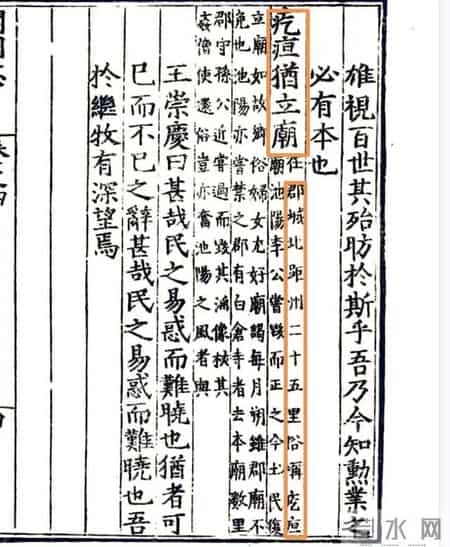 雄視百世其殆昉於斯乎吾乃今知勲業之
必有本也
疙疸猶立廟
在郡城北距州二十五里俗稱疙疸
廟池陽李公嘗毀而正之今土民復
立廟如故鄉俗婦女尤好廟謁每月朔雖郡廟不
免也池陽亦嘗禁之郡有白倉寺者去本廟數里
郡守孫公近嘗過而毀其像杖其
姦僧使還俗豈亦奮池陽之風者與
王崇慶曰甚哉民之易惑而難曉也猶者可
已而不已之辭甚哉民之易惑而難曉也吾
於繼牧有深望焉
水网